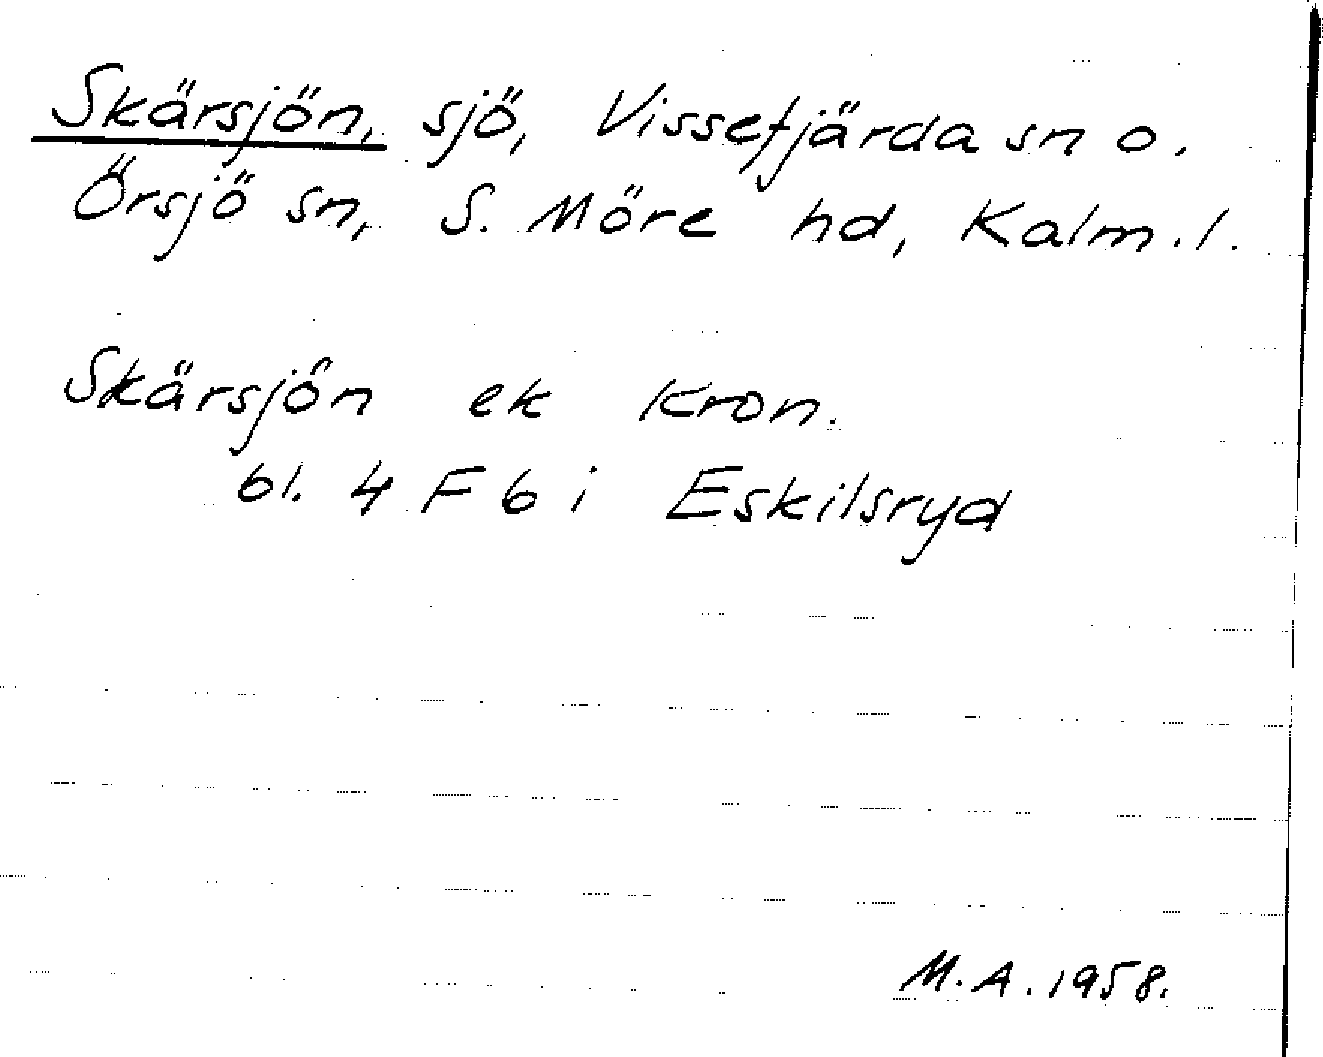 Skärsjön, sjö, Vissefjärda sn o.
Örsjö sn, S. Möre hd, Kalm. l.
Skärsjön ek Kron.
bl. 4 F 6 i Eskilsryd
M. A. 1958.